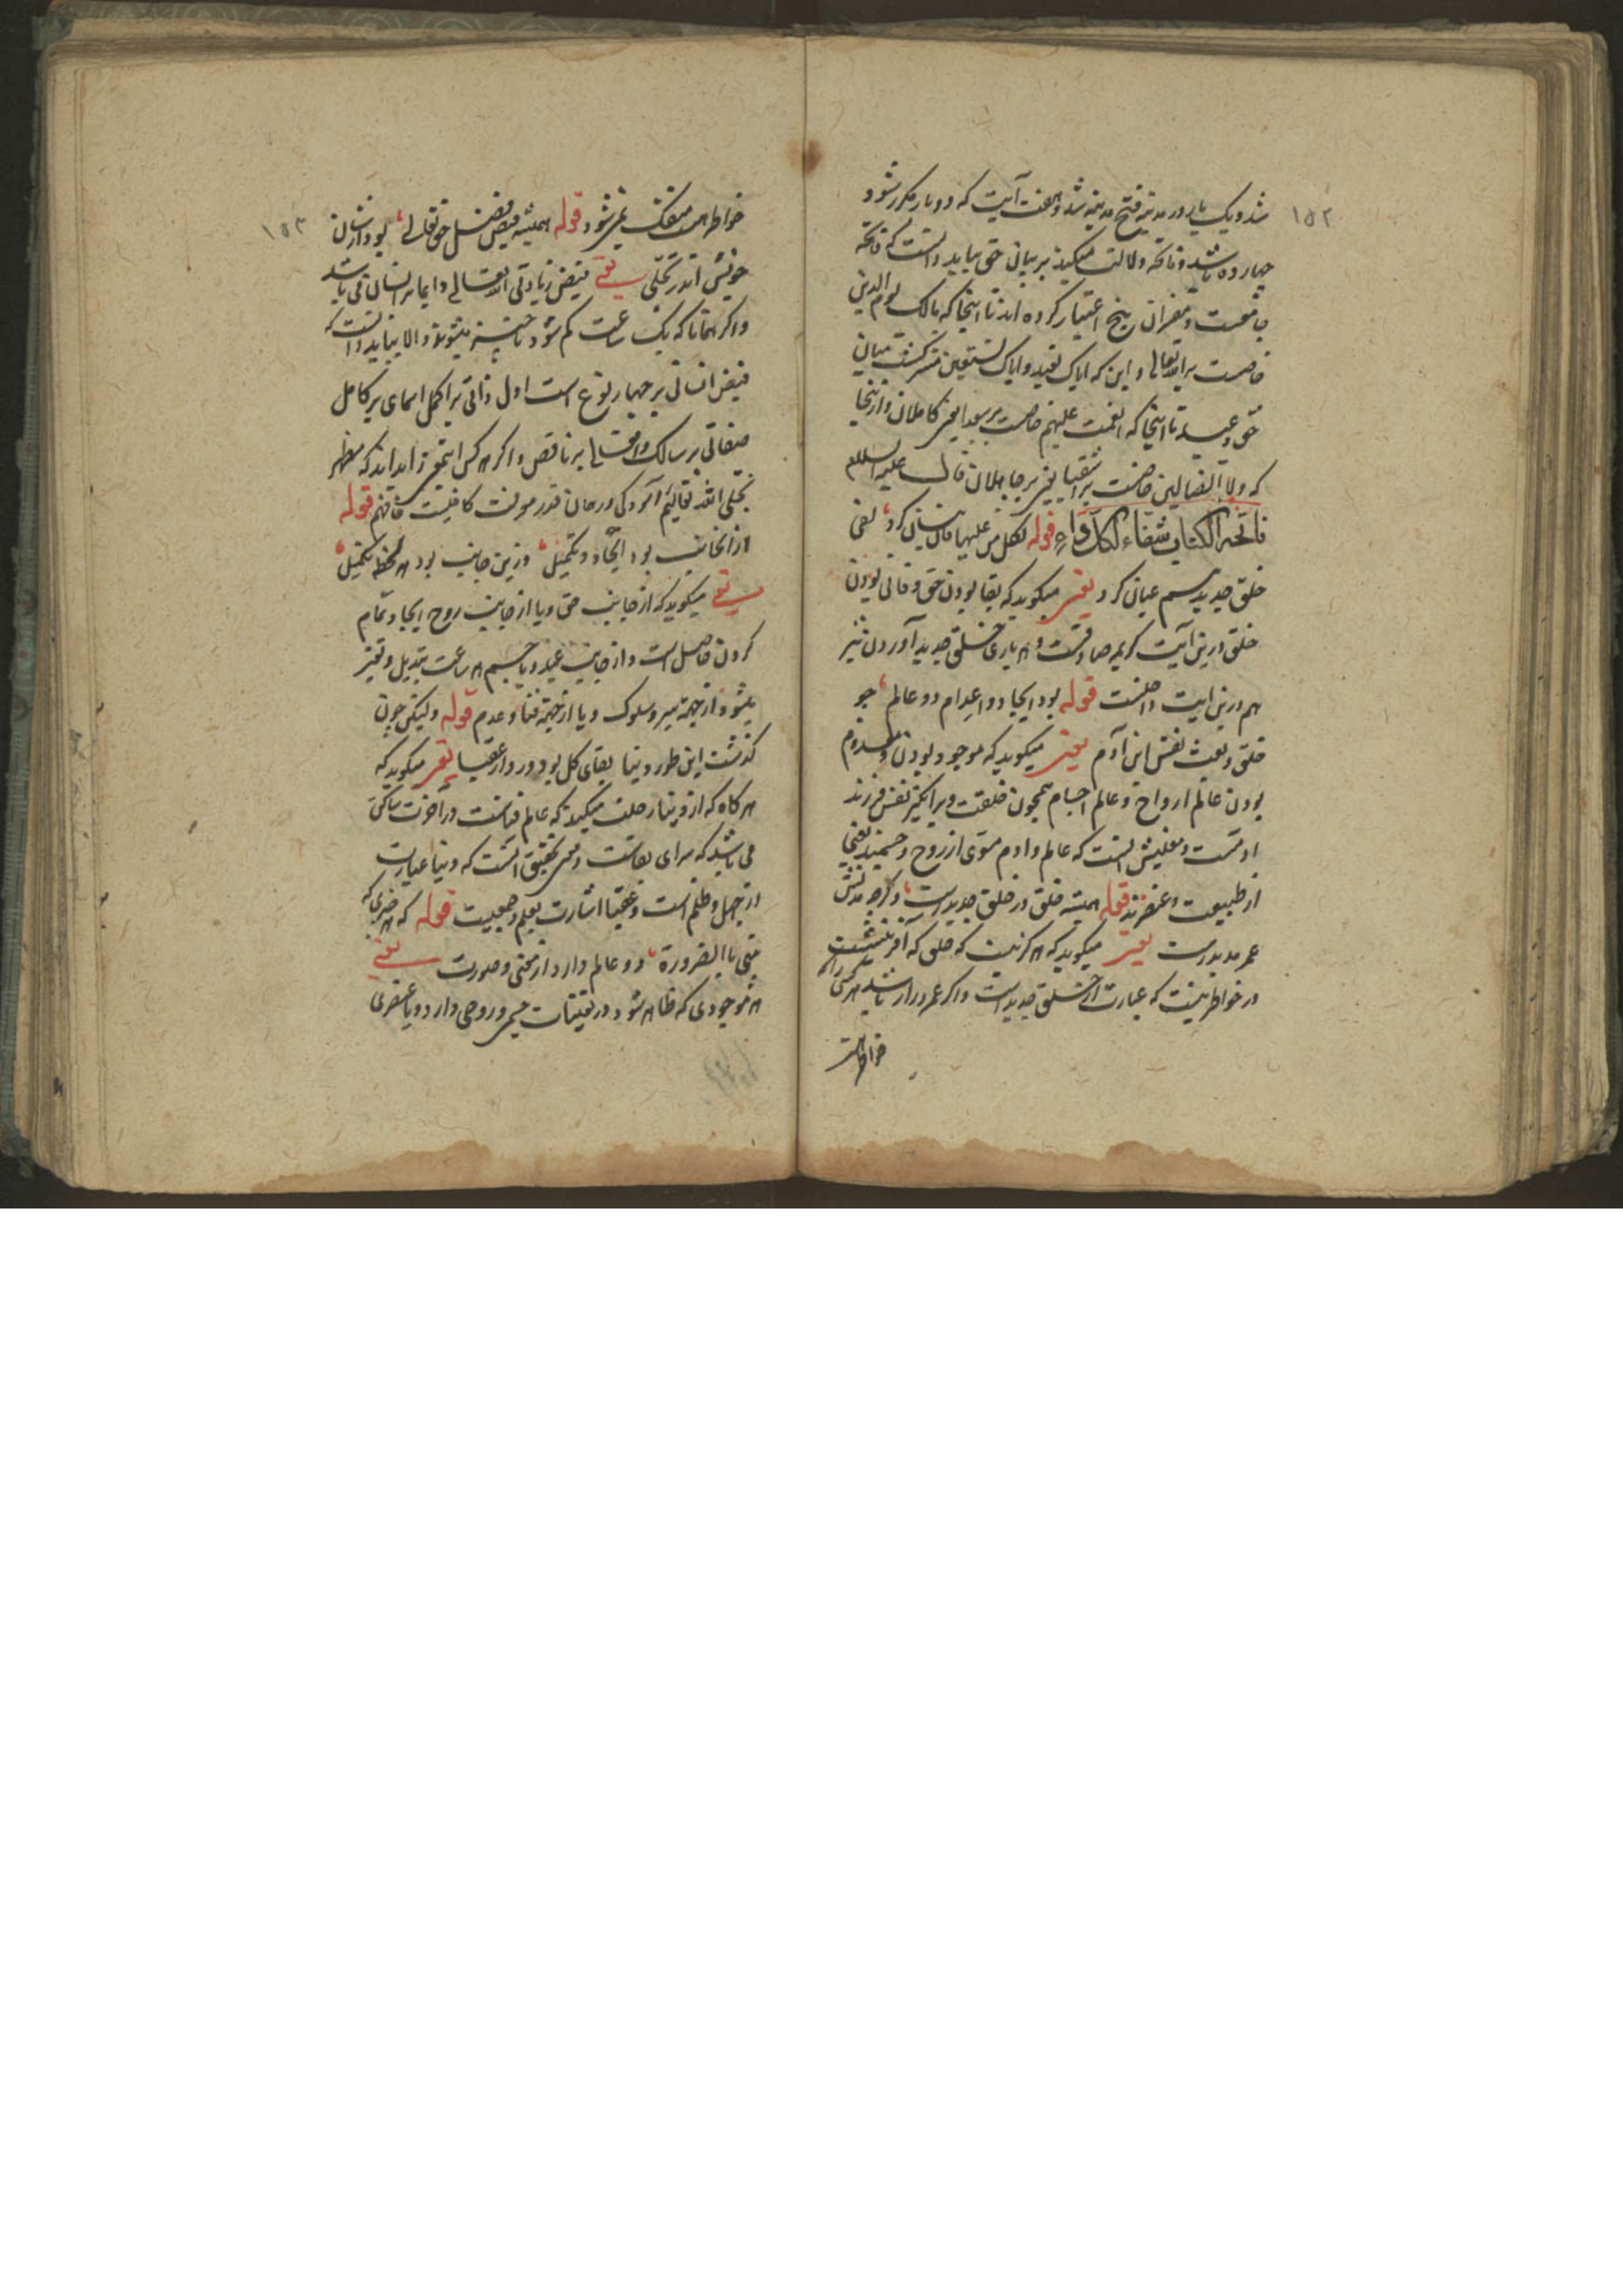 ۱۵۲
شد و یک بار در مدینه فتح مدینه شد و هفت آیت که دو بار مکرر شود
چهارده باشد و فاتحه دلالت میکند بر بیان حق بباید دانست که فاتحه
جامعست و مفسران پنج اعتبار کرده اند تا اینجا که مالک یوم الدین
خاصست برای تعالی و این که ایاک نعبد و ایاک نستعین مشترکست میان
حق و عبد تا اینجا که انعمت علیهم خاصست کاملان و از اینجا
که ولا الضالین خاصست جاهلان قال علیه السلام
فاتحة الکتاب شفاء لکل داء قوله لکل من علیها فان بیان کرد لفی
خلق جدید هم عیان کرد یعنی میکوید که بقا بودن حق و فانی بودن
خلق درین آیت کریمه صادقست و باری خلق جدید آوردن نیز
هم درین آیت داخلست قوله بود ایجاد و اعدام دو عالم چو
خلق و بعث نفس ابن آدم یعنی میکوید که موجود بودن و معدوم
بودن عالم ارواح و عالم اجسام همچون خلقت و برانکیز نفس فرزند
آدمست و معنیش آنست که عالم و آدم از روح و جسمند یعنی
از طبیعت و عنصرند قوله همیشه خلق در خلق جدید است و کرچه مدتش
عمر مدید است یعنی میکوید که هر که نیست که خلق که آفرینشست
در خواطر نیست که عبارت از خلق جدید است و اکر عمر دراز باشد هر کس را که
خواطرهست
۱۵۳
خواطرهست منفک نمی شود قوله همیشه فیض فضل حق تعالی بود از شان
خویش اندر تجلی یعنی فیض زیادتی الله تعالی دایما بر انسان می باشد
و اکر همانا که یک ساعت کم شود ناچیز میشوند والا بباید دانست که
فیض بر چهار نوع است اول ذاتی بر اکمل اسمای بر کامل
صفاتی بر سالک بر ناقص و اکر هر کس که مظهر
تجلی الله تعالیم قدر معرفت کافیست فافهم قوله
از آنجانب بود ایجاد و تکمیل وزین جانب بود هر لحظه تکمیل
یعنی میکوید که از جانب حق و یا از جانب روح ایجاد و تمام
کردن حاصل است و از جانب عبد و یا جسم هر ساعت تبدیل و تغیر
میشود از جهة سیر و سلوک و یا از جهة فنا و عدم قوله ولیکن چون
کذشت این طور دنیا بقای کل بود در دار عقبا یعنی میکوید که
هر کاه که از دنیا رحلت میکند که عالم فناست در آخرت ساکن
می باشد که سرای بقاست و تحقیق آنست که دنیا عبارت
از جهل و ظلم است و عقبا اشارت بعلم و جمعیت قوله که هر چیزی که
بینی بالضرورة دو عالم دارد از معنی و صورت یعنی
هر موجودی که ظاهر شود در تعینات جسم و روحی دارد و یا عنصری